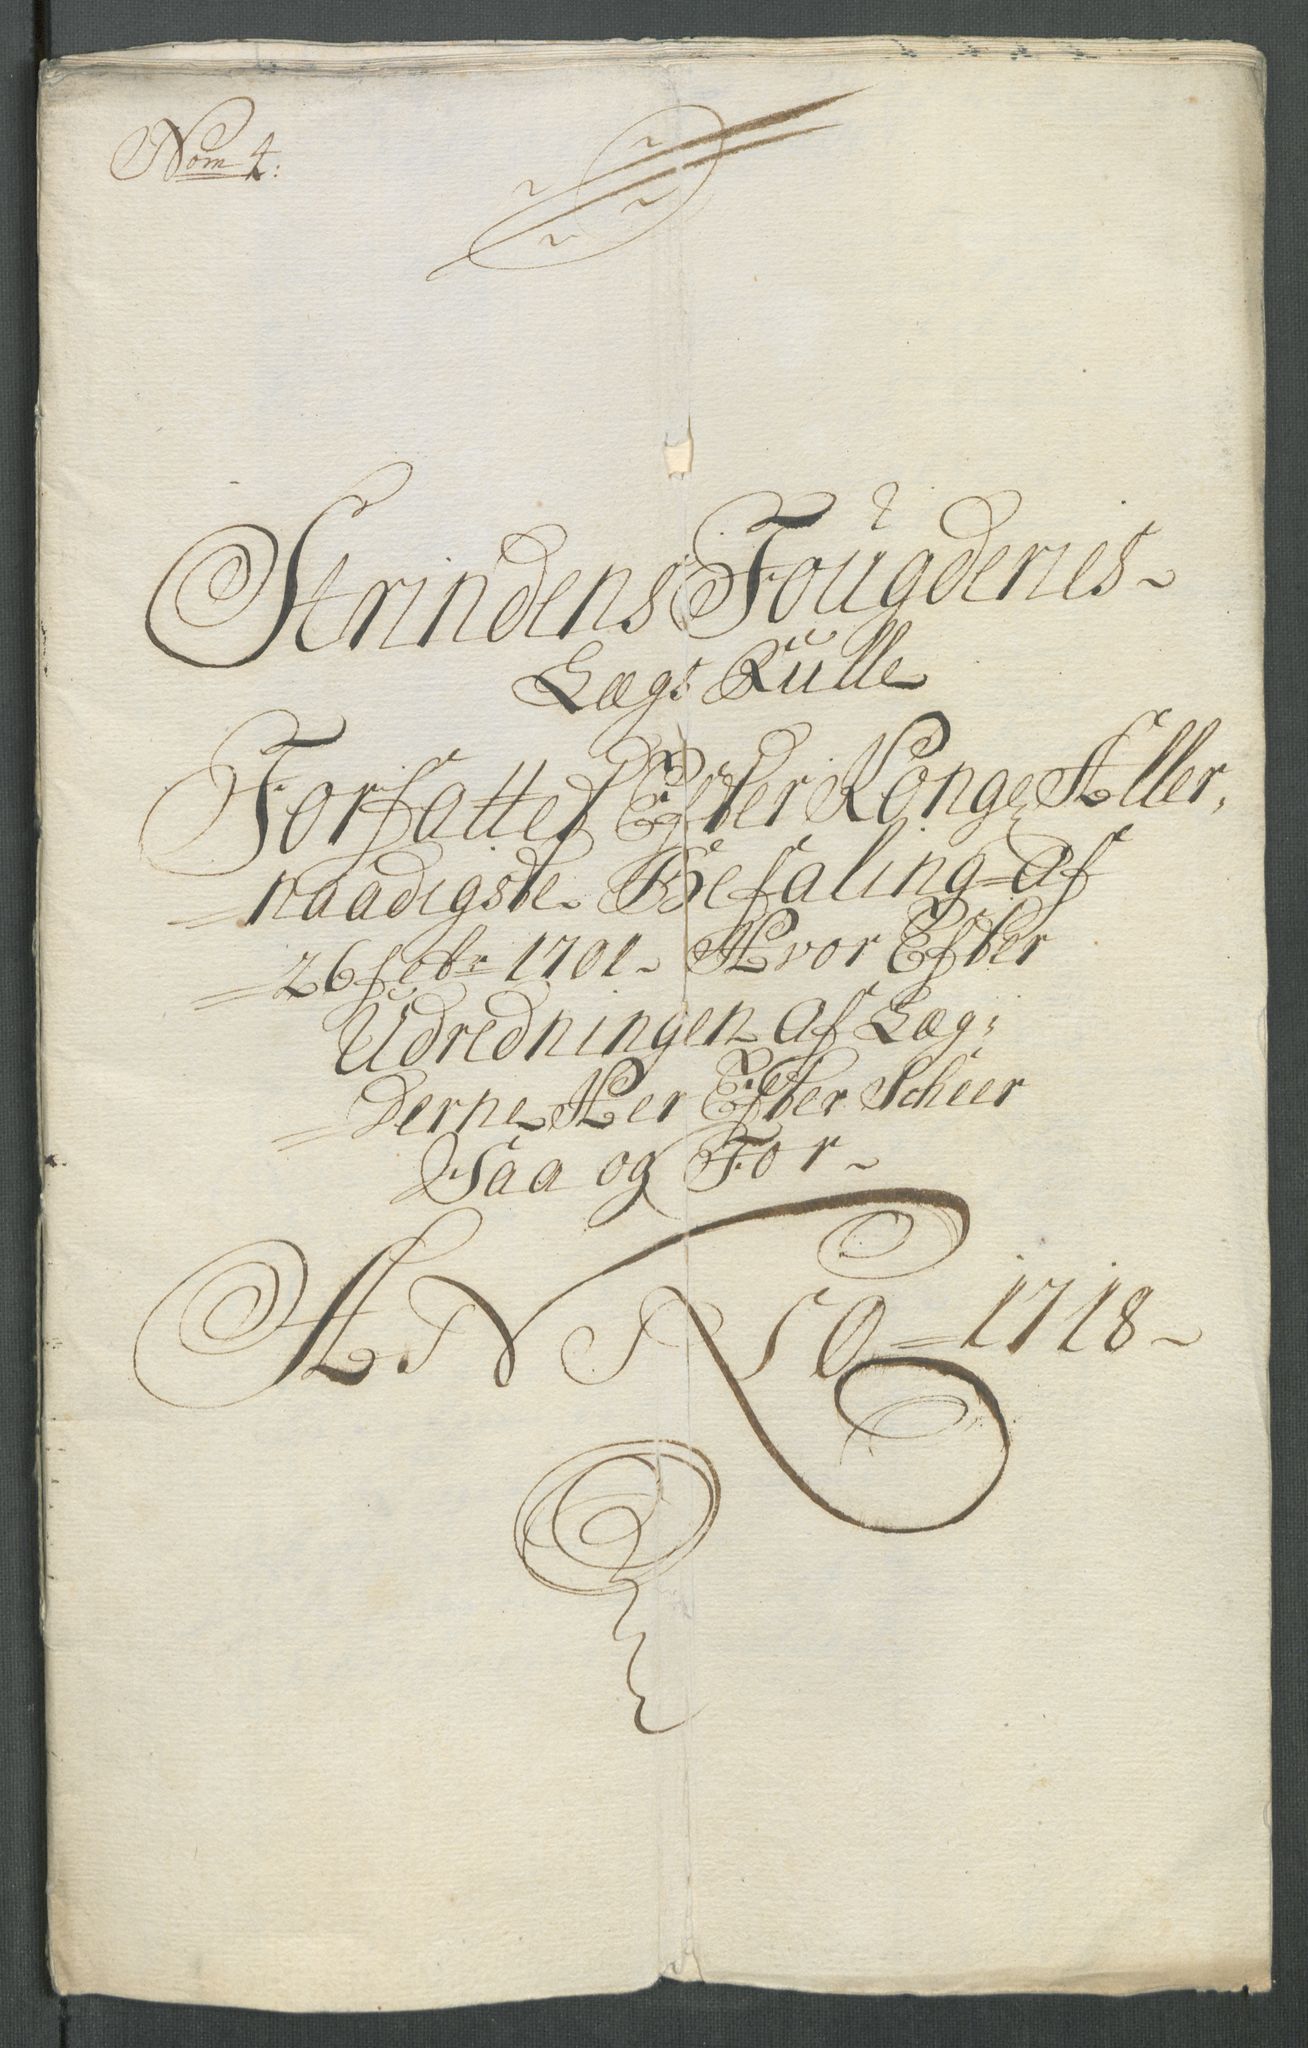 Nom 4:
Strindens Foügderies
Lægs Rülle
Forfattet Efter Konge Aller,
naadigste Befaling af
26 febr 1701 Hvor Efter
Üdredningen af Læg:
derne Her Efter Scheer
Saa og For
ANNO 1718